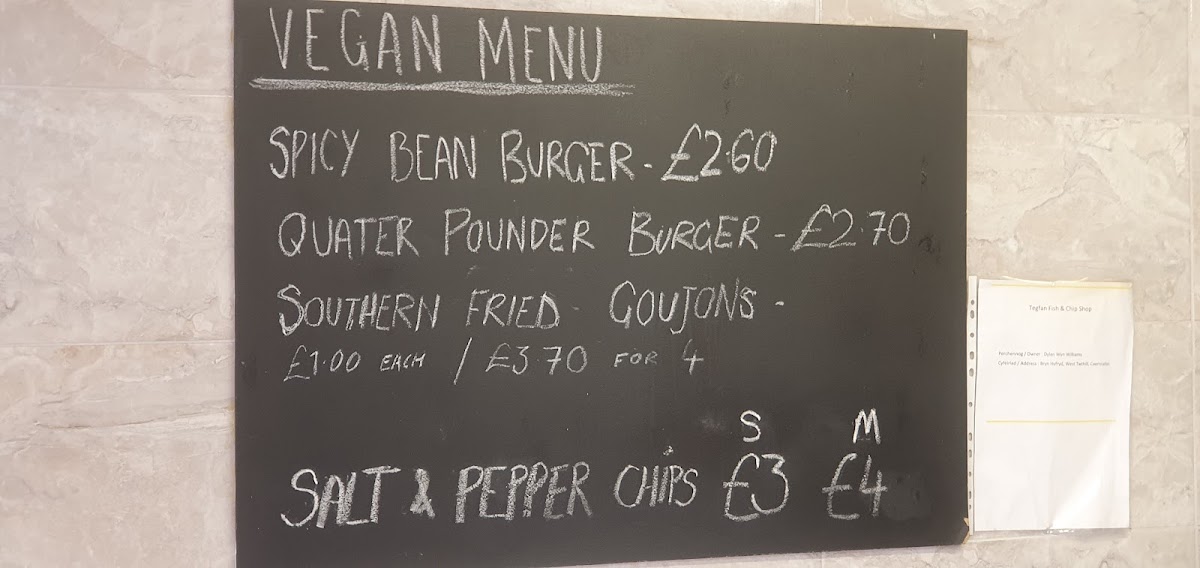 VEGAN MENU
SPICY BEAN BURGER - £2.60
QUATER POUNDER BURGER - £2.70
SOUTHERN FRIED - GOUJONS -
£1.00 EACH / £3.70 FOR 4
S M
SALT & PEPPER CHIPS £3 £4
Tegfan Fish & Chip Shop
/ Owner : Dylan Wyn Williams
/ Address :